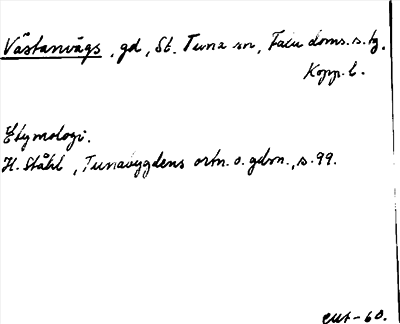 Västanvägs, gd, St. Tuna sn, Falu doms. s. tg.
Kopp. l.
Etymologi.
H. Ståhl, Tunabygdens ortn. o. gdsn., s. 99.
-60.